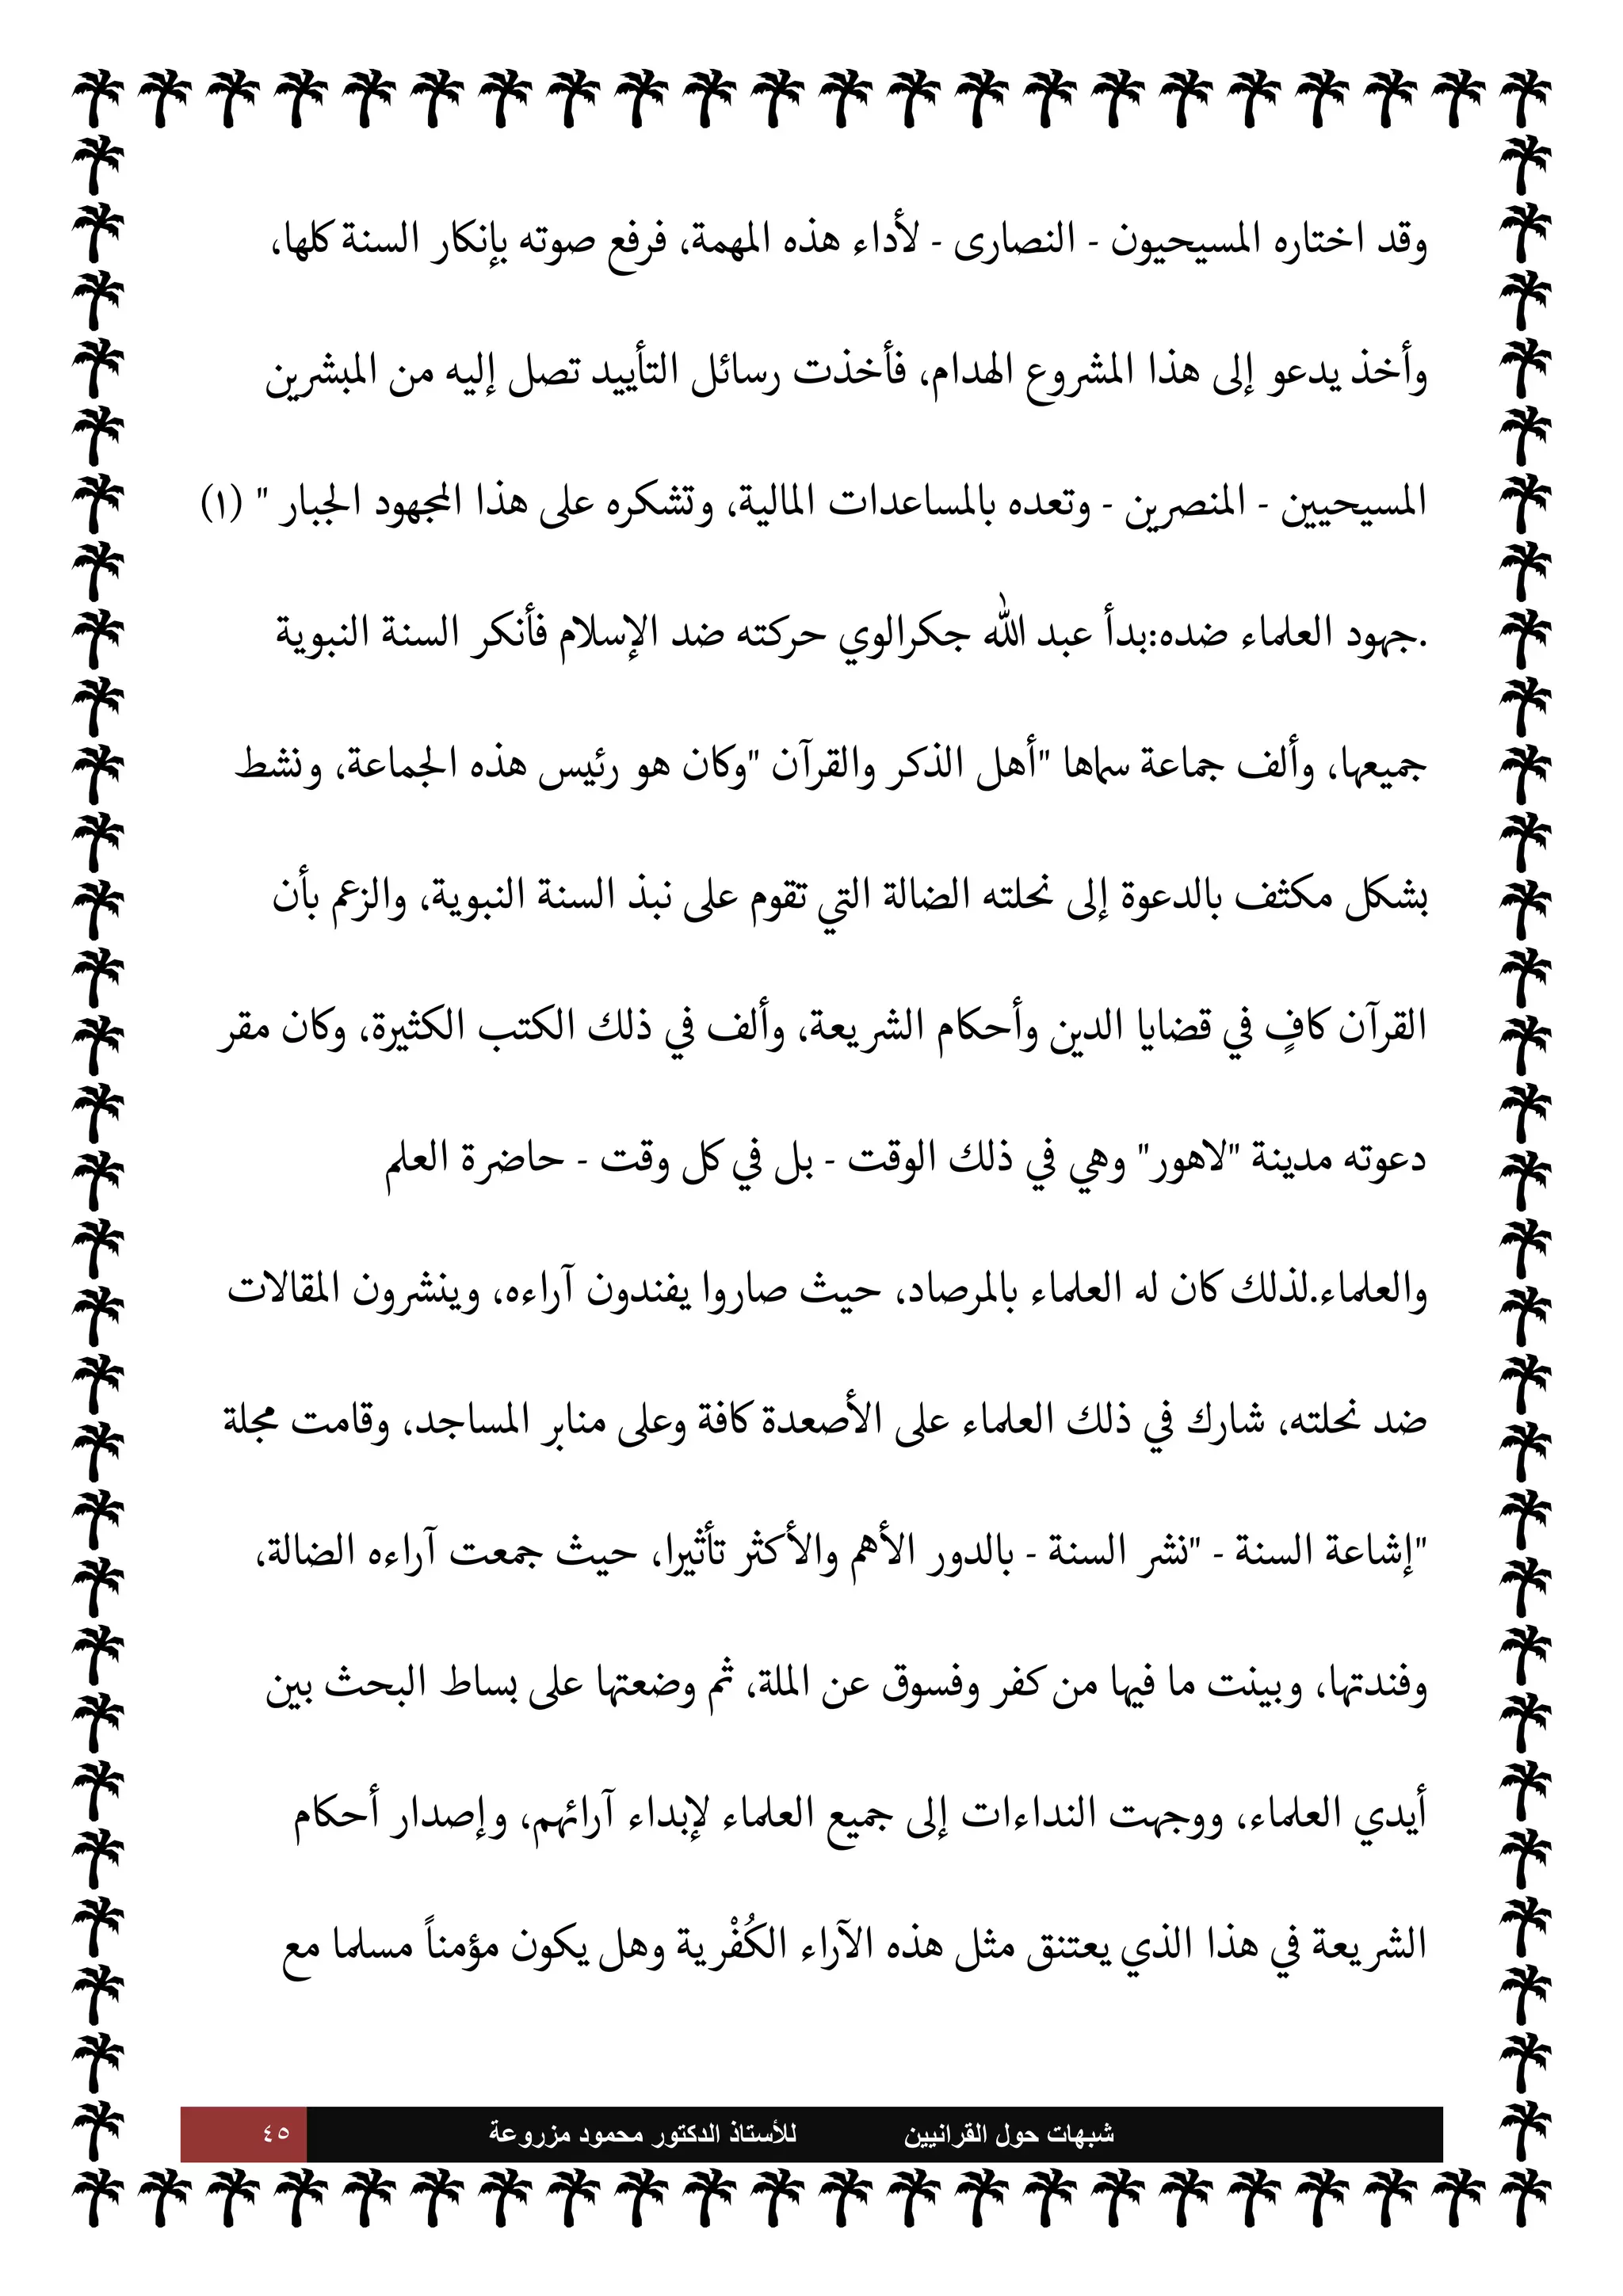 وقد اختاره المسيحيون - النصارى - لأداء هذه المهمة، فرفع صوته بإنكار السنة كلها،
وأخذ يدعو إلى هذا المشروع الهدام، فأخذت رسائل التأييد تصل إليه من المبشرين
المسيحيين - المنصرين - وتعده بالمساعدات المالية، وتشكره على هذا المجهود الجبار " (١)
.جهود العلماء ضده:بدأ عبد الله جكرالوي حركته ضد الإسلام فأنكر السنة النبوية
جميعها، وألف جماعة سماها "أهل الذكر والقرآن "وكان هو رئيس هذه الجماعة، ونشط
بشكل مكثف بالدعوة إلى نحلته الضالة التي تقوم على نبذ السنة النبوية، والزعم بأن
القرآن كافٍ في قضايا الدين وأحكام الشريعة، وألف في ذلك الكتب الكثيرة، وكان مقر
دعوته مدينة "لاهور" وهي في ذلك الوقت - بل في كل وقت - حاضرة العلم
والعلماء.لذلك كان له العلماء بالمرصاد، حيث صاروا يفندون آراءه، وينشرون المقالات
ضد نحلته، شارك في ذلك العلماء على الأصعدة كافة وعلى منابر المساجد، وقامت مجلة
"إشاعة السنة - "نشر السنة - بالدور الأهم والأكثر تأثيرا، حيث جمعت آراءه الضالة،
وفندتها، وبينت ما فيها من كفر وفسوق عن الملة، ثم وضعتها على بساط البحث بين
أيدي العلماء، ووجهت النداءات إلى جميع العلماء لإبداء آرائهم، وإصدار أحكام
الشريعة في هذا الذي يعتنق مثل هذه الآراء الكُفْرية وهل يكون مؤمناً مسلما مع
شبهات حول القرانيين للأستاذ الدكتور محمود مزروعة ٤٥